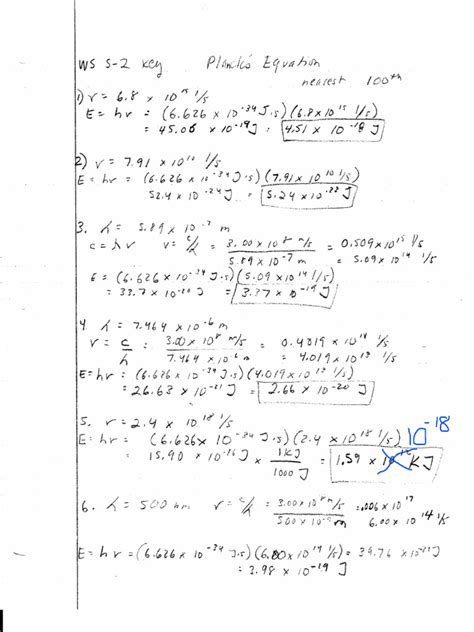 WS 5-2 Key Planck's Equation
nearest 100th
1) ν = 6.8 x 10^15 1/s
E = hν = (6.626 x 10^-34 J·s)(6.8 x 10^15 1/s)
= 45.06 x 10^-19 J = 4.51 x 10^-18 J
2) ν = 7.91 x 10^10 1/s
E = hν = (6.626 x 10^-34 J·s)(7.91 x 10^10 1/s)
52.4 x 10^-24 J = 5.24 x 10^-23 J
3. λ = 5.89 x 10^-7 m
c = λν ν = c/λ = 3.00 x 10^8 m/s / 5.89 x 10^-7 m = 0.509 x 10^15 1/s
= 5.09 x 10^14 1/s
E = (6.626 x 10^-34 J·s)(5.09 x 10^14 1/s)
= 33.7 x 10^-20 J = 3.37 x 10^-19 J
4. λ = 7.464 x 10^-6 m
ν = c/λ = 3.00 x 10^8 m/s / 7.464 x 10^-6 m = 0.4019 x 10^14 1/s
= 4.019 x 10^13 1/s
E = hν = (6.626 x 10^-34 J·s)(4.019 x 10^13 1/s)
= 26.63 x 10^-21 J = 2.66 x 10^-20 J
5. ν = 2.4 x 10^18 1/s
E = hν = (6.626 x 10^-34 J·s)(2.4 x 10^18 1/s) 10^-18
= 15.90 x 10^-16 J x 1 KJ / 1000 J = 1.59 x KJ
6. λ = 500 nm ν = c/λ = 3.00 x 10^8 m/s / 500 x 10^-9 m = .006 x 10^17
6.00 x 10^14 1/s
E = hν = (6.626 x 10^-34 J·s)(6.00 x 10^14 1/s) = 39.76 x 10^-20 J
= 3.98 x 10^-19 J